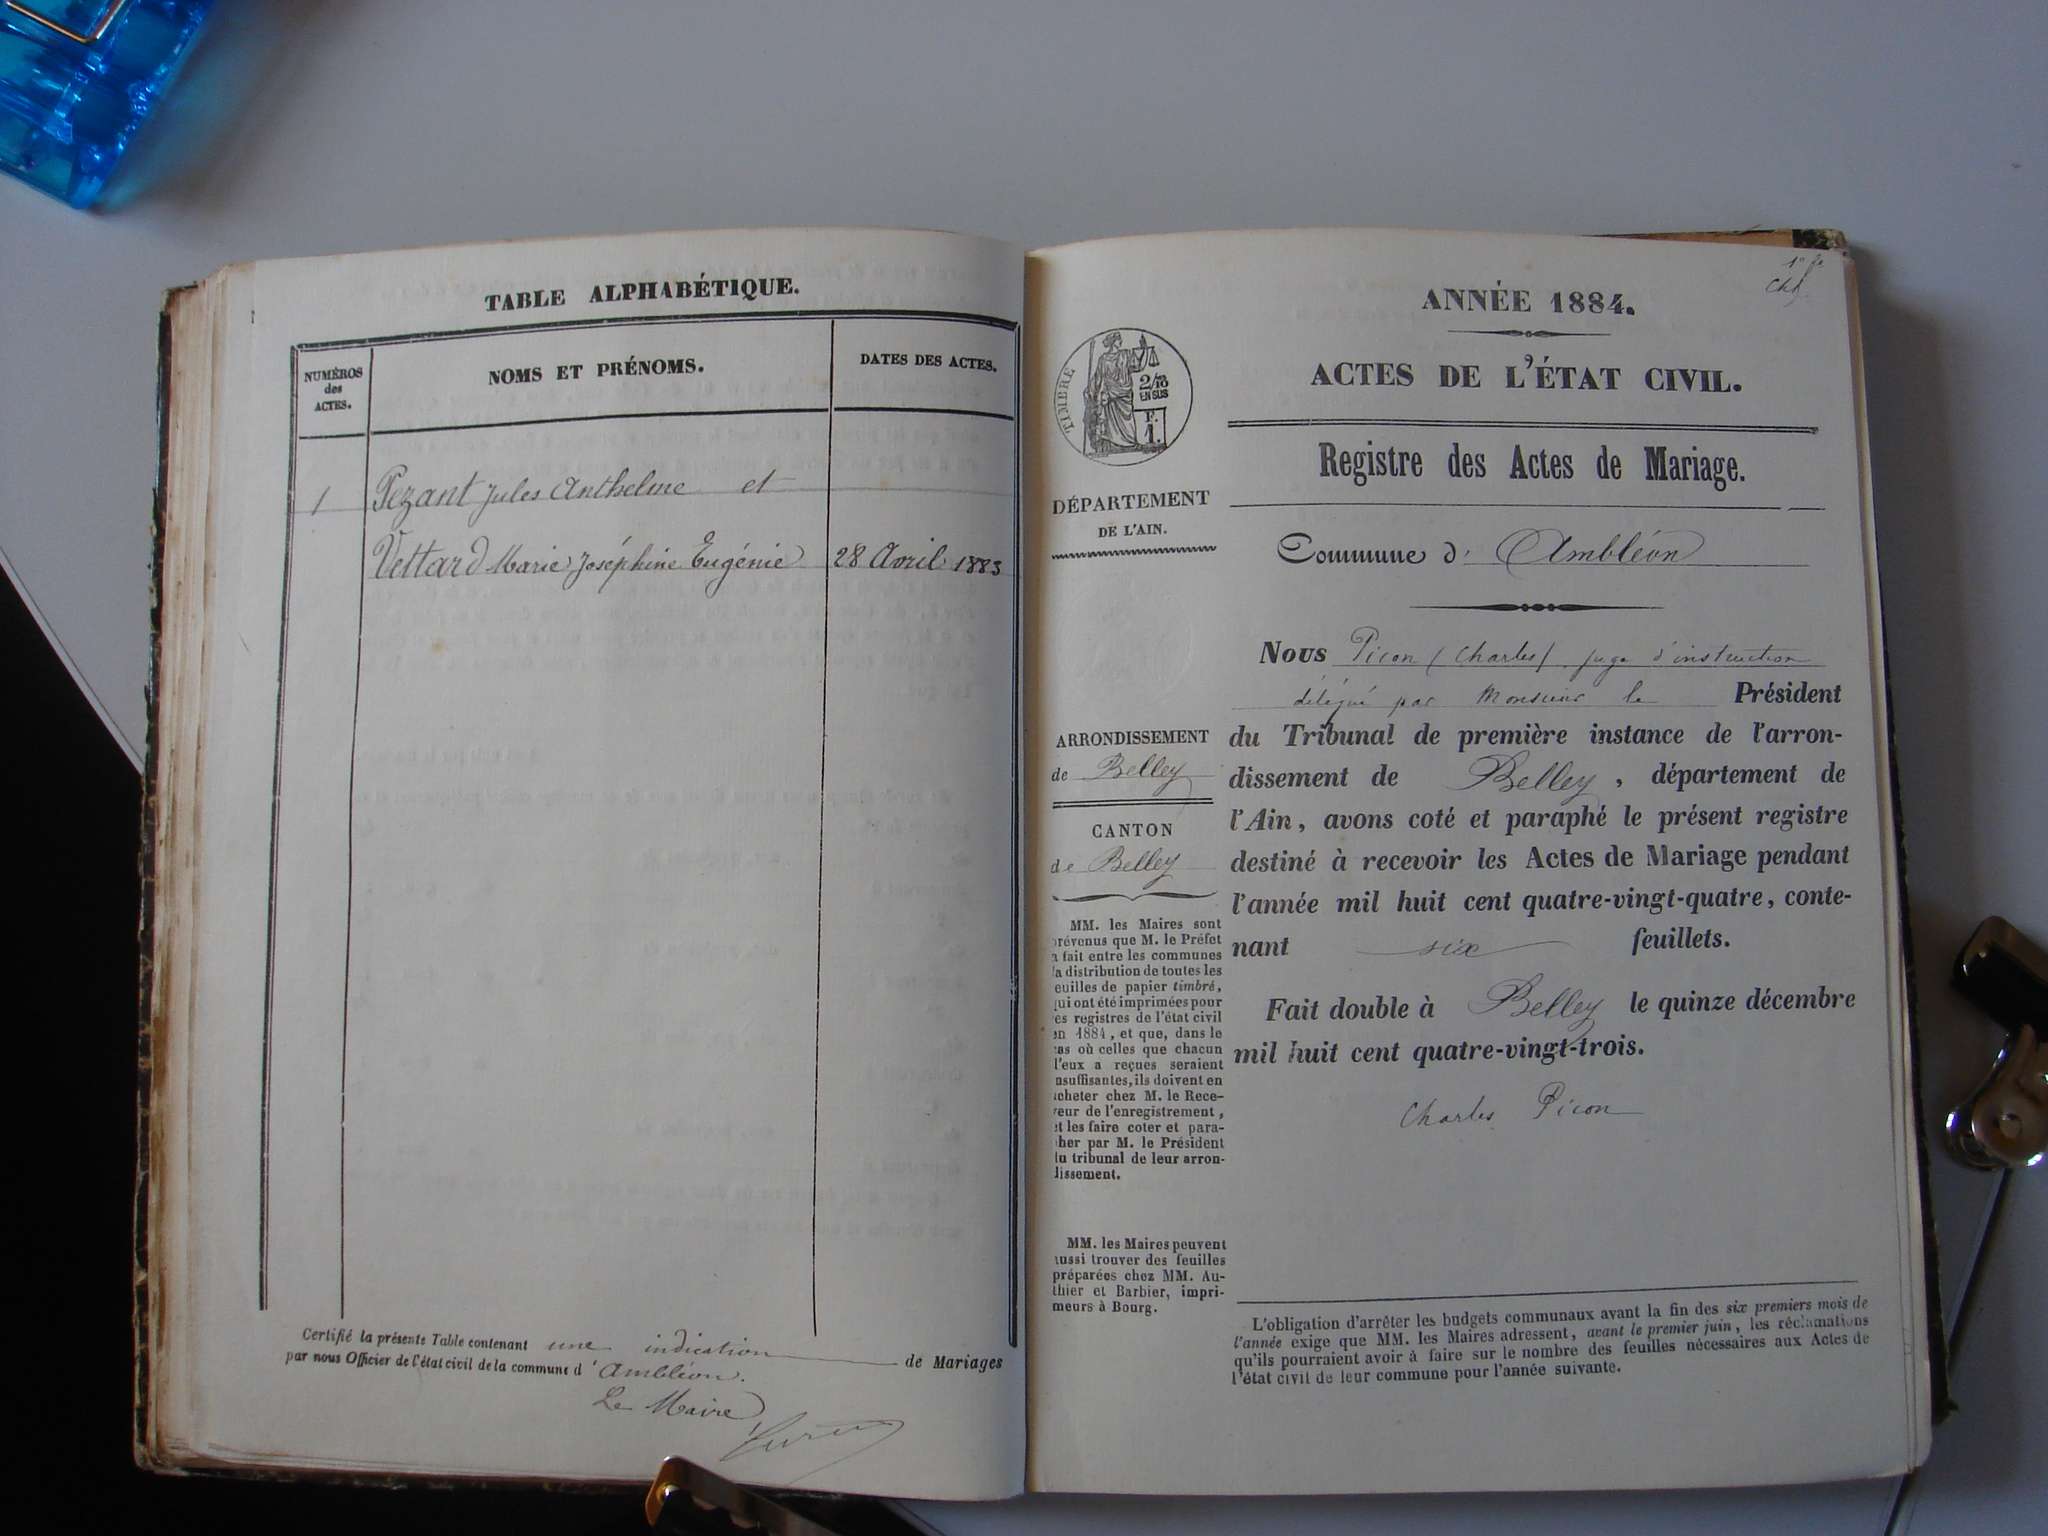 TABLE ALPHABÉTIQUE.
NUMÉROS
des
ACTES.
NOMS ET PRÉNOMS.
DATES DES ACTES.
1
Pezant Jules Anthelme et
Vettard Marie Joséphine Eugénie
28 Avril 1883
Certifié la présente Table contenant une indication de Mariages
par nous Officier de l'état civil de la commune d'Ambléon.
Le Maire
ANNÉE 1884.
ACTES DE L'ÉTAT CIVIL.
TIMBRE
2/10
EN SUS
F.
1.
Registre des Actes de Mariage.
DÉPARTEMENT
DE L'AIN.
Commune d'Ambléon
Nous Picon (Charles) juge d'instruction
délégué par Monsieur le Président
du Tribunal de première instance de l'arron-
dissement de Belley, département de
l'Ain, avons coté et paraphé le présent registre
destiné à recevoir les Actes de Mariage pendant
l'année mil huit cent quatre-vingt-quatre, conte-
nant six feuillets.
Fait double à Belley le quinze décembre
mil huit cent quatre-vingt-trois.
Charles Picon
ARRONDISSEMENT
de Belley
CANTON
de Belley
MM. les Maires sont
prévenus que M. le Préfet
a fait entre les communes
la distribution de toutes les
euilles de papier timbré,
qui ont été imprimées pour
es registres de l'état civil
en 1884, et que, dans le
cas où celles que chacun
l'eux a reçues seraient
nsuffisantes, ils doivent en
cheter chez M. le Rece-
veur de l'enregistrement,
et les faire coter et para-
pher par M. le Président
du tribunal de leur arron-
dissement.
MM. les Maires peuvent
aussi trouver des feuilles
préparées chez MM. Au-
thier et Barbier, impri-
meurs à Bourg.
L'obligation d'arrêter les budgets communaux avant la fin des six premiers mois de
l'année exige que MM. les Maires adressent, avant le premier juin, les réclamations
qu'ils pourraient avoir à faire sur le nombre des feuilles nécessaires aux Actes de
l'état civil de leur commune pour l'année suivante.